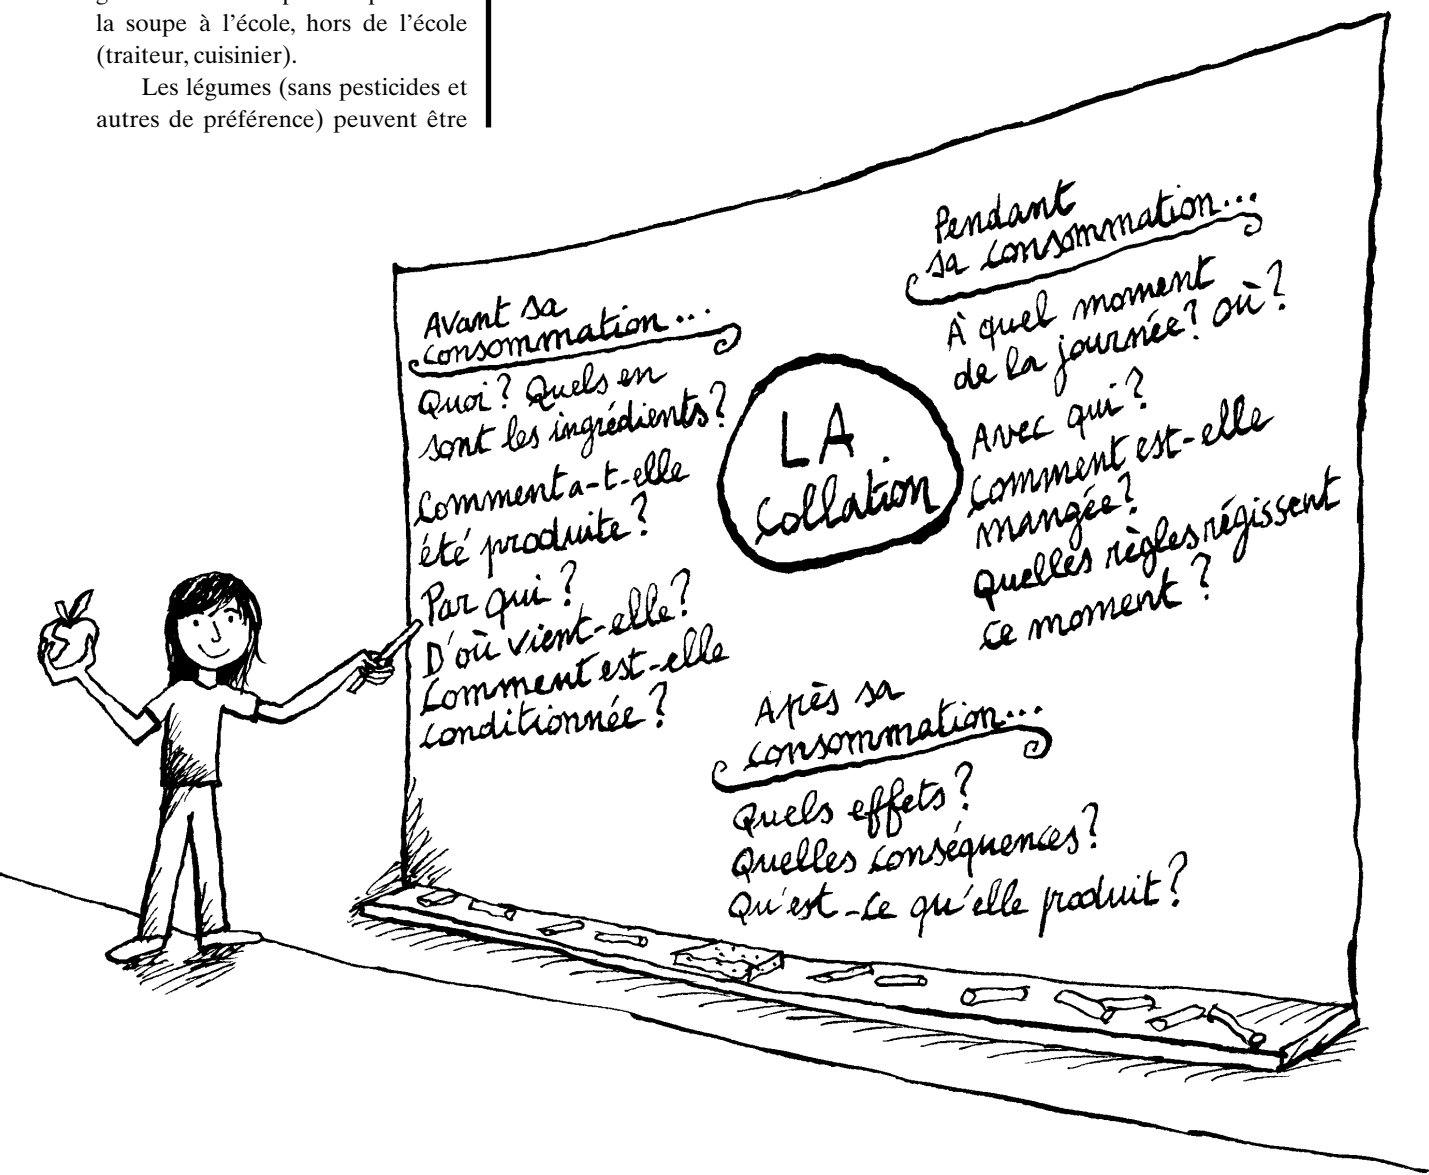 la soupe à l'école, hors de l'école
(traiteur, cuisinier).
Les légumes (sans pesticides et
autres de préférence) peuvent être
Avant sa
consommation...
Quoi? Quels en
sont les ingrédients?
Comment a-t-elle
été produite?
Par qui?
D'où vient-elle?
Comment est-elle
conditionnée?
LA
collation
Pendant
sa consommation...
À quel moment
de la journée? où?
Avec qui?
Comment est-elle
mangée?
Quelles règles régissent
ce moment?
Après sa
consommation...
Quels effets?
Quelles conséquences?
Qu'est-ce qu'elle produit?